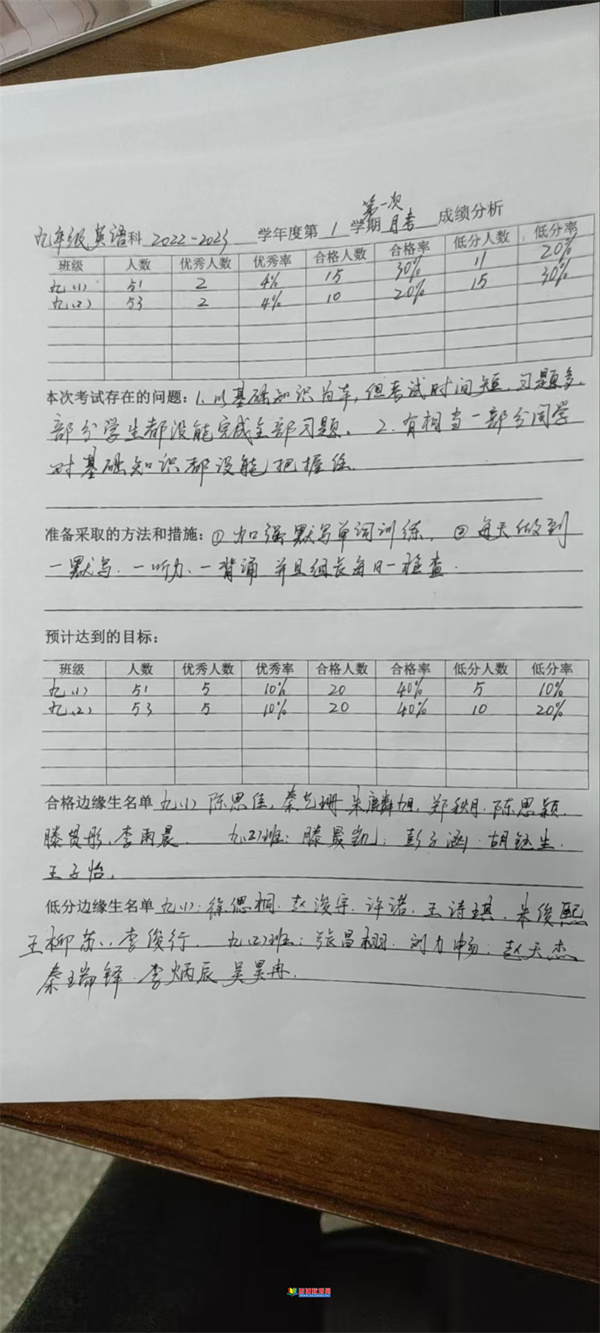 第一次
九年级英语科 2022-2023 学年度第 1 学期月考 成绩分析
班级 人数 优秀人数 优秀率 合格人数 合格率 低分人数 低分率
九(1) 51 2 4% 15 30% 11 20%
九(2) 53 2 4% 10 20% 15 30%
本次考试存在的问题:1.以基础知识为主,但考试时间短,习题多,
部分学生都没能完成全部习题。2.有相当一部分同学
对基础知识都没能把握住.
准备采取的方法和措施:①加强默写单词训练. ②每天做到
一默写.一听力.一背诵 并且组长每日一检查.
预计达到的目标:
班级 人数 优秀人数 优秀率 合格人数 合格率 低分人数 低分率
九(1) 51 5 10% 20 40% 5 10%
九(2) 53 5 10% 20 40% 10 20%
合格边缘生名单 九(1) 陈思佳,秦 珊 朱麟旭,郑秋月.陈思颖,
滕贤彤,李雨晨. 九(2)班:滕晟凯;彭 涵.胡钰生.
王子怡.
低分边缘生名单 九(1):徐偲桐.赵浚宇.许诺.王诗琪.朱俊熙
王柳 .李俊行. 九(2)班:张昌栩.刘力畅.赵天杰
秦瑞铎.李炳辰 吴昊冉.